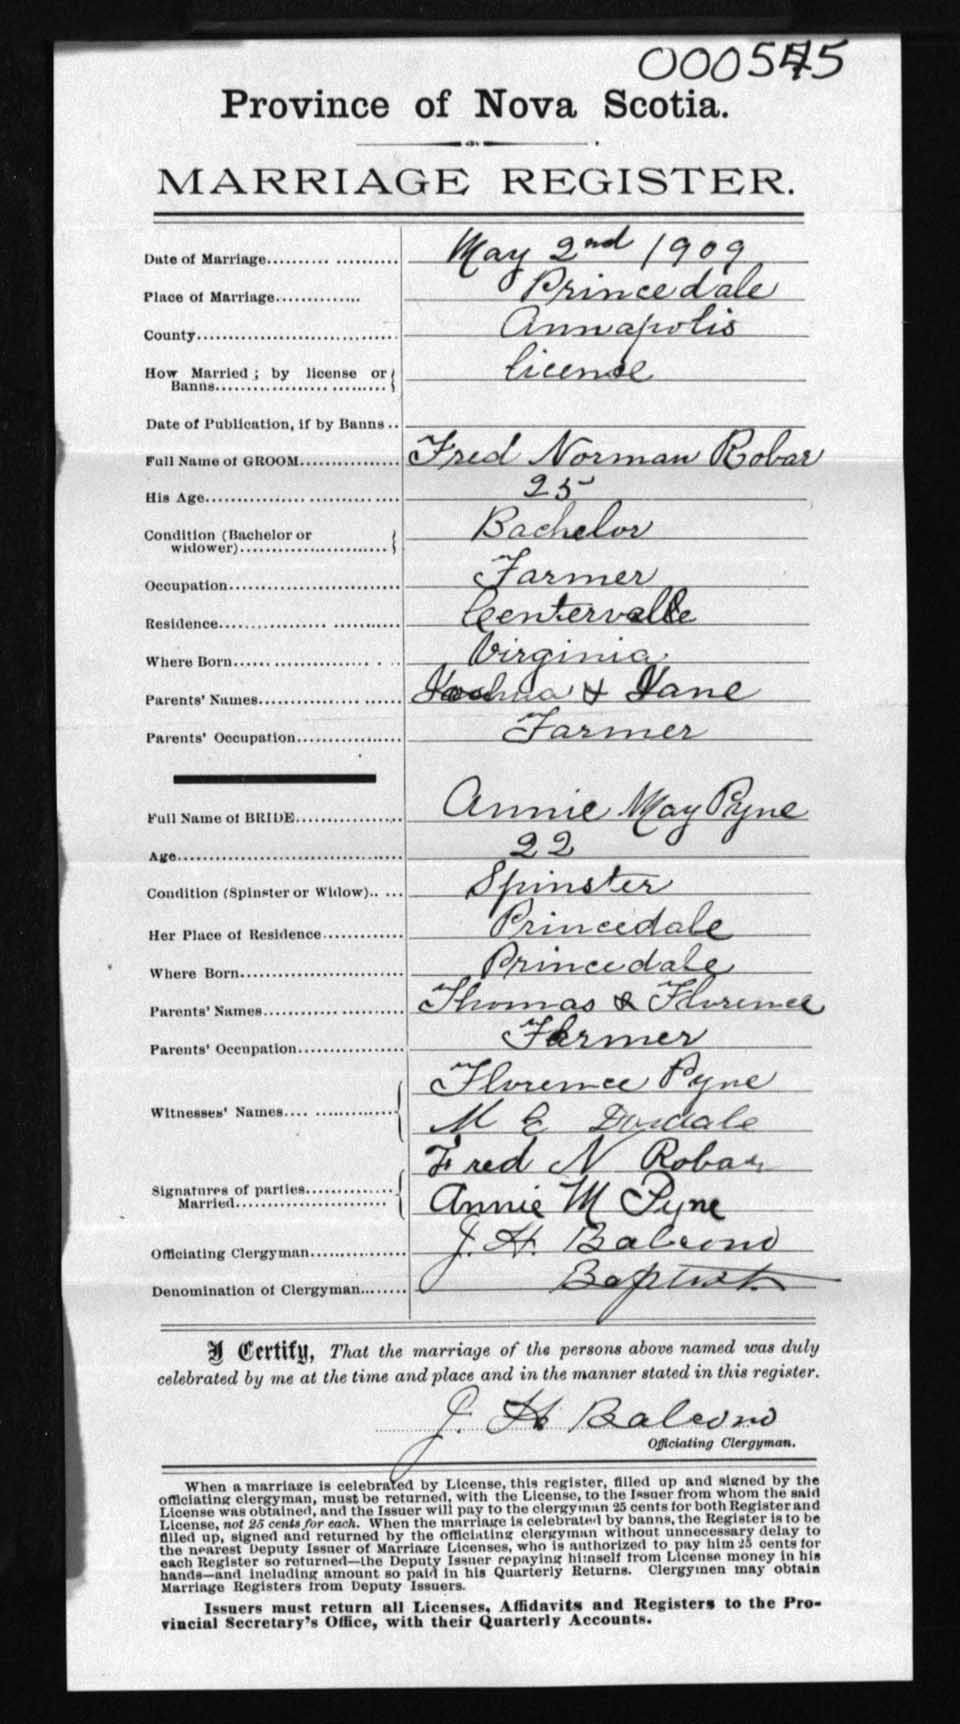 000575
Province of Nova Scotia.
MARRIAGE REGISTER.
Date of Marriage.......... May 2nd 1909
Place of Marriage............. Princedale
County.............................. Annapolis
How Married; by license or
Banns......................... license
Date of Publication, if by Banns..
Full Name of GROOM................ Fred Norman Robar
His Age.............................. 25
Condition (Bachelor or
widower)......................... Bachelor
Occupation........................... Farmer
Residence........................... Centervalle
Where Born...................... Virginia
Parents' Names..................... Joshua & Jane
Parents' Occupation................ Farmer
Full Name of BRIDE................ Annie May Pyne
Age................................... 22
Condition (Spinster or Widow).. ... Spinster
Her Place of Residence............. Princedale
Where Born......................... Princedale
Parents' Names..................... Thomas & Florence
Parents' Occupation................ Farmer
Florence Pyne
Witnesses' Names.... ..............
M E
Fred N Robar
Signatures of parties..............
Married........................ Annie M Pyne
Officiating Clergyman............... J. H. Balcom
Denomination of Clergyman........ Baptist.
I Certify, That the marriage of the persons above named was duly
celebrated by me at the time and place and in the manner stated in this register.
J. H Balcom
Officiating Clergyman.
When a marriage is celebrated by License, this register, filled up and signed by the
officiating clergyman, must be returned, with the License, to the Issuer from whom the said
License was obtained, and the Issuer will pay to the clergyman 25 cents for both Register and
License, not 25 cents for each. When the marriage is celebrated by banns, the Register is to be
filled up, signed and returned by the officiating clergyman without unnecessary delay to
the nearest Deputy Issuer of Marriage Licenses, who is authorized to pay him 25 cents for
each Register so returned—the Deputy Issuer repaying himself from License money in his
hands—and including amount so paid in his Quarterly Returns. Clergymen may obtain
Marriage Registers from Deputy Issuers.
Issuers must return all Licenses, Affidavits and Registers to the Pro-
vincial Secretary's Office, with their Quarterly Accounts.